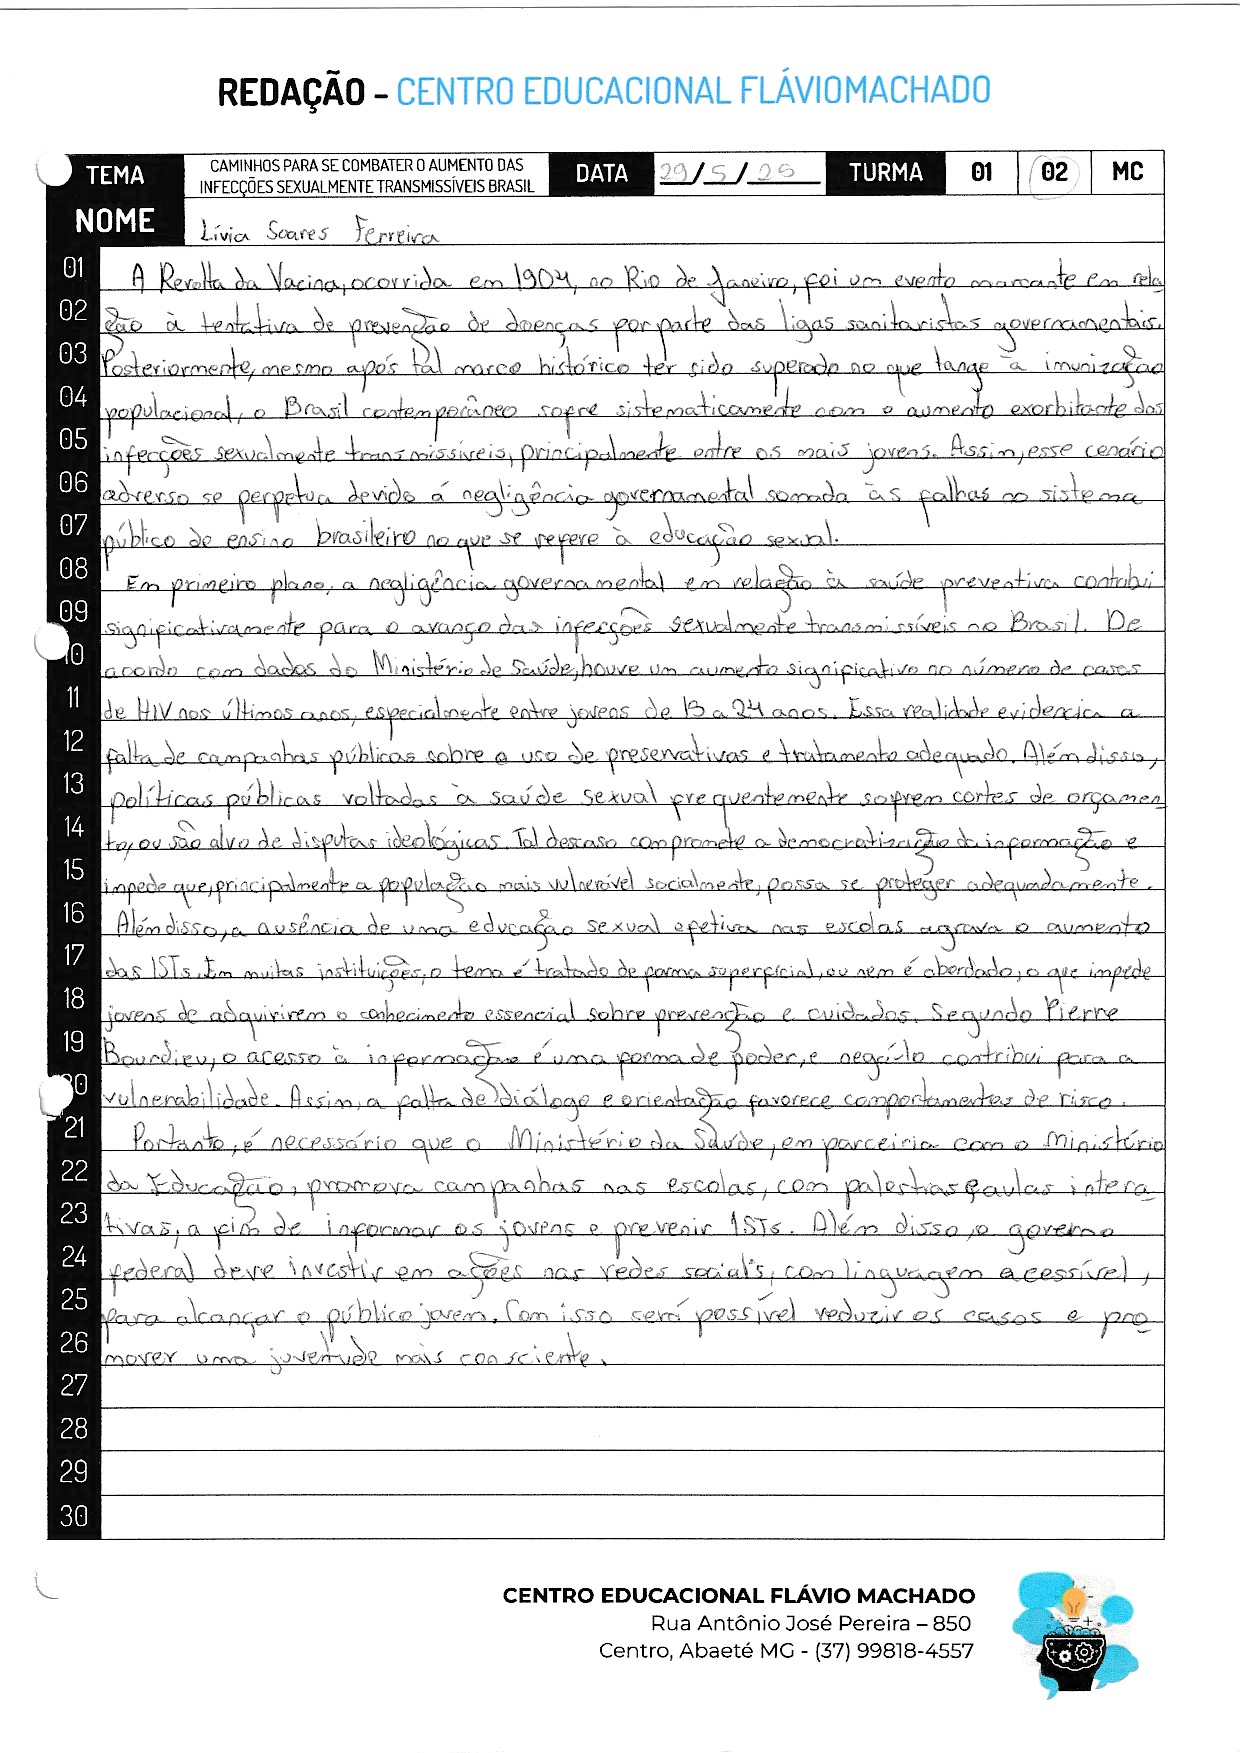 REDAÇÃO - CENTRO EDUCACIONAL FLÁVIOMACHADO
TEMA
CAMINHOS PARA SE COMBATER O AUMENTO DAS
INFECÇÕES SEXUALMENTE TRANSMISSÍVEIS BRASIL
DATA 29/5/25 TURMA 01 02 MC
NOME Lívia Soares Ferreira
01 A Revolta da Vacina, ocorrida em 1904, no Rio de Janeiro, foi um evento marcante em rela
02 ção à tentativa de prevenção de doenças por parte das ligas sanitaristas governamentais.
03 Posteriormente, mesmo após tal marco histórico ter sido superado no que tange à imunização
04 populacional, o Brasil contemporâneo sofre sistematicamente com o aumento exorbitante das
05 infecções sexualmente transmissíveis, principalmente entre os mais jovens. Assim, esse cenário
06 adverso se perpetua devido á negligência governamental somada às falhas no sistema
07 público de ensino brasileiro no que se refere à educação sexual.
08 Em primeiro plano, a negligência governamental em relação à saúde preventiva contribui
09 significativamente para o avanço das infecções sexualmente transmissíveis no Brasil. De
10 acordo com dados do Ministério de Saúde, houve um aumento significativo no número de casos
11 de HIV nos últimos anos, especialmente entre jovens de 15 a 24 anos. Essa realidade evidencia a
12 falta de campanhas públicas sobre o uso de preservativos e tratamento adequado. Além disso,
13 políticas públicas voltadas à saúde sexual frequentemente sofrem cortes de orçamen
14 to, ou são alvo de disputas ideológicas. Tal descaso compromete a democratização da informação e
15 impede que, principalmente a população mais vulnerável socialmente, possa se proteger adequadamente.
16 Além disso, a ausência de uma educação sexual efetiva nas escolas agrava o aumento
17 das ISTs. Em muitas instituições, o tema é tratado de forma superficial, ou nem é abordado, o que impede
18 jovens de adquirirem o conhecimento essencial sobre prevenção e cuidados. Segundo Pierre
19 Bourdieu, o acesso à informação é uma forma de poder, e negá-lo contribui para a
20 vulnerabilidade. Assim, a falta de diálogo e orientação favorece comportamentos de risco.
21 Portanto, é necessário que o Ministério da Saúde, em parceiria com o Ministério
22 da Educação, promova campanhas nas escolas, com palestras e aulas intera
23 tivas, a fim de informar os jovens e prevenir ISTs. Além disso, o governo
24 federal deve investir em ações nas redes sociais, com linguagem acessível,
25 para alcançar o público jovem. Com isso será possível reduzir os casos e pro
26 mover uma juventude mais consciente.
27
28
29
30
CENTRO EDUCACIONAL FLÁVIO MACHADO
Rua Antônio José Pereira – 850
Centro, Abaeté MG - (37) 99818-4557